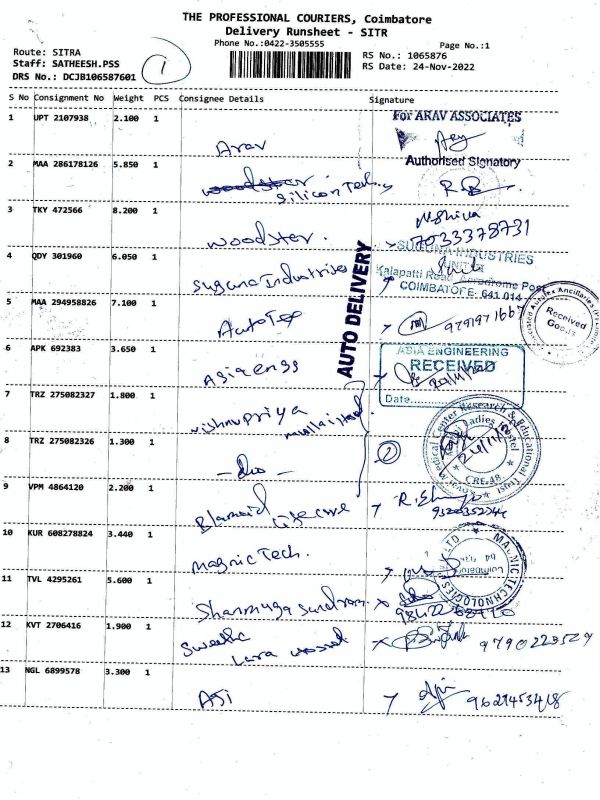 THE PROFESSIONAL COURIERS, Coimbatore
Delivery Runsheet - SITR
Phone No.:0422-3505555
Page No.:1
Route: SITRA
Staff: SATHEESH.PSS
DRS No.: DCJB106587601
1
RS No.: 1065876
RS Date: 24-Nov-2022
S No Consignment No Weight PCS Consignee Details Signature
1 UPT 2107938 2.100 1 Arav
For ARAV ASSOCIATES
Authorised Signatory
2 MAA 286178126 5.850 1 Silicon Tech
3 TKY 472566 8.200 1 Woodster.
7033378731
4 QDY 301960 6.050 1 Suguna Industries
SUGUNA INDUSTRIES
Kalapatti Road, Aerodrome Post
COIMBATORE- 641 014
5 MAA 294958826 7.100 1
9791971667
Received
Goods
AUTO DELIVERY
6 APK 692383 3.650 1 Asia engg
ASIA ENGINEERING
RECEIVED
Date
7 TRZ 275082327 1.800 1 Vishnupriya
Medical Center Research & Educational Trust
Ladies Hostel
CBE-48
8 TRZ 275082326 1.300 1 -do-
2
9 VPM 4864120 2.200 1 Lifecare
10 KUR 608278824 3.440 1 Magnic Tech.
MAGNIC TECHNOLOGIES
LTD
Coimbatore
11 TVL 4295261 5.600 1 Shanmuga Sundram
12 KVT 2706416 1.900 1
9790223529
13 NGL 6899578 3.300 1 Agi
9629453418